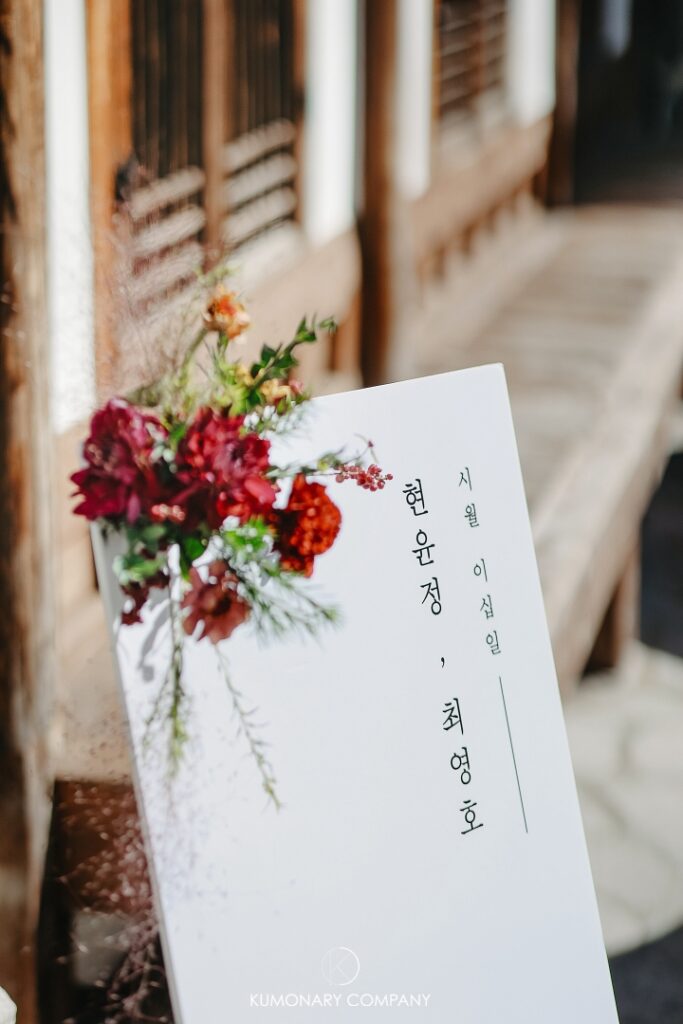 시월 이십일
현윤정, 최영호
K
KUMONARY COMPANY